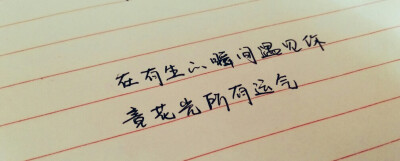 在有生的瞬间遇见你
竟花光所有运气